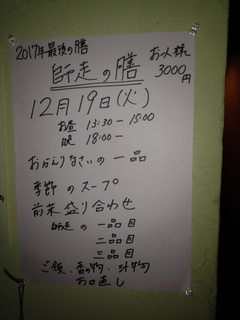 2017年最後の膳
師走の膳
お一人様
3000円
12月19日(火)
お昼 13:30-15:00
晩 18:00-
おかえりなさいの一品
季節のスープ
前菜盛り合わせ
師走の一品目
二品目
三品目
ご飯・香の物・汁物
お口直し